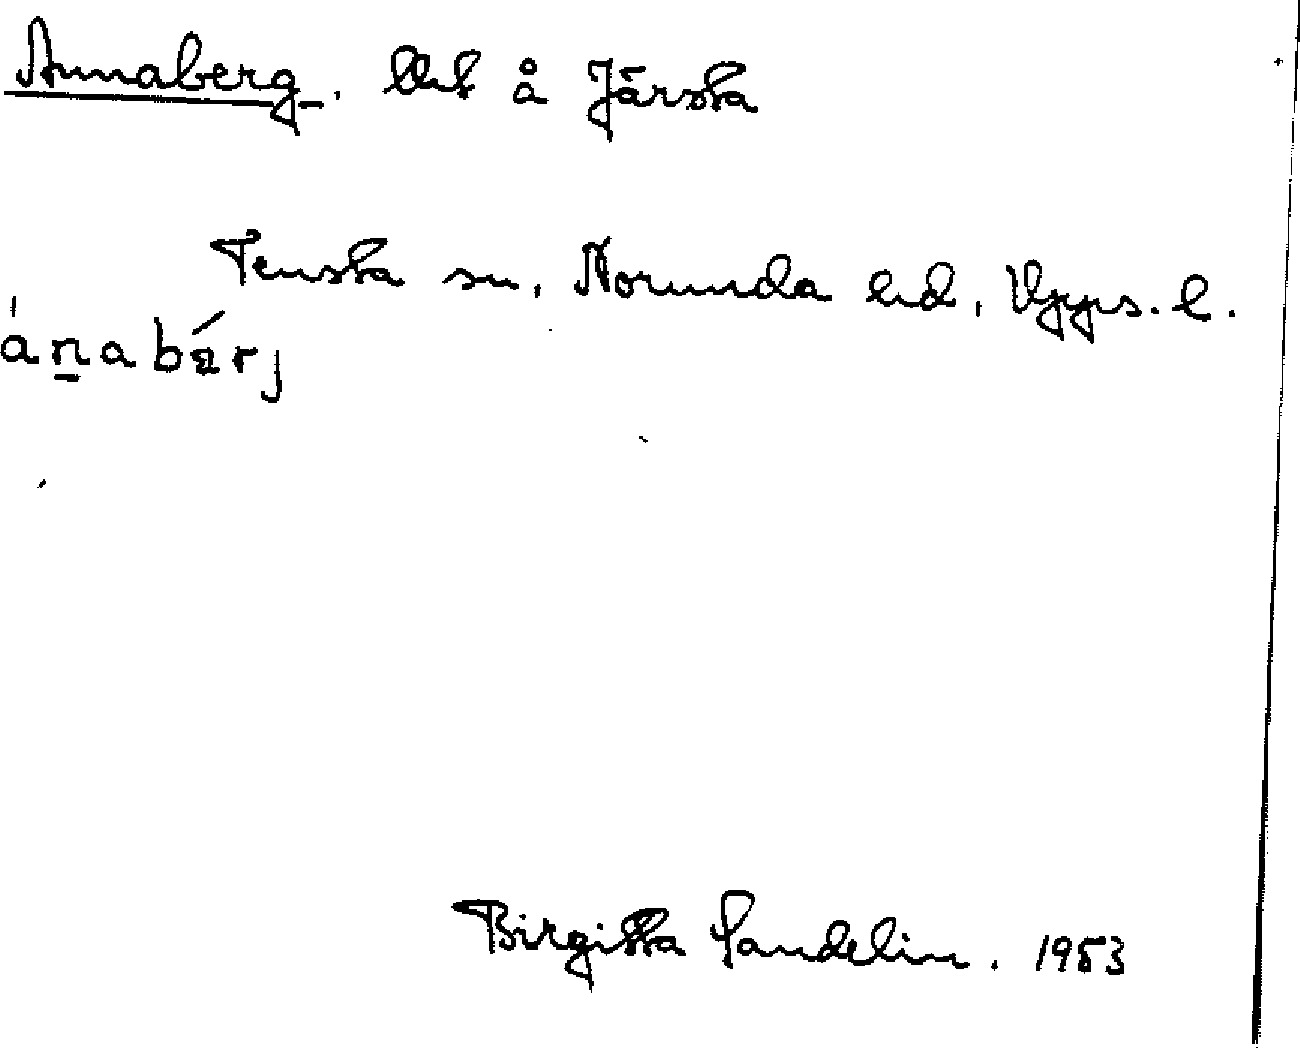 Annaberg. Ut å Järsta
Tensta sn, Norunda hd, Upps. l.
ánabǽrj
Birgitta Sandelin. 1953